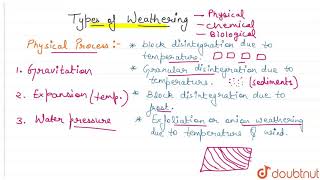 Types of Weathering
Physical
Chemical
Biological
Physical Process :-
1. Gravitation
2. Expansion (temp.)
3. Water pressure
* Block disintegration due to
temperature.
* Granular disintegration due to
temperature. (sediments)
* Block disintegration due to
frost.
* Exfoliation or onion weathering
due to temperature & wind.
doubtnut